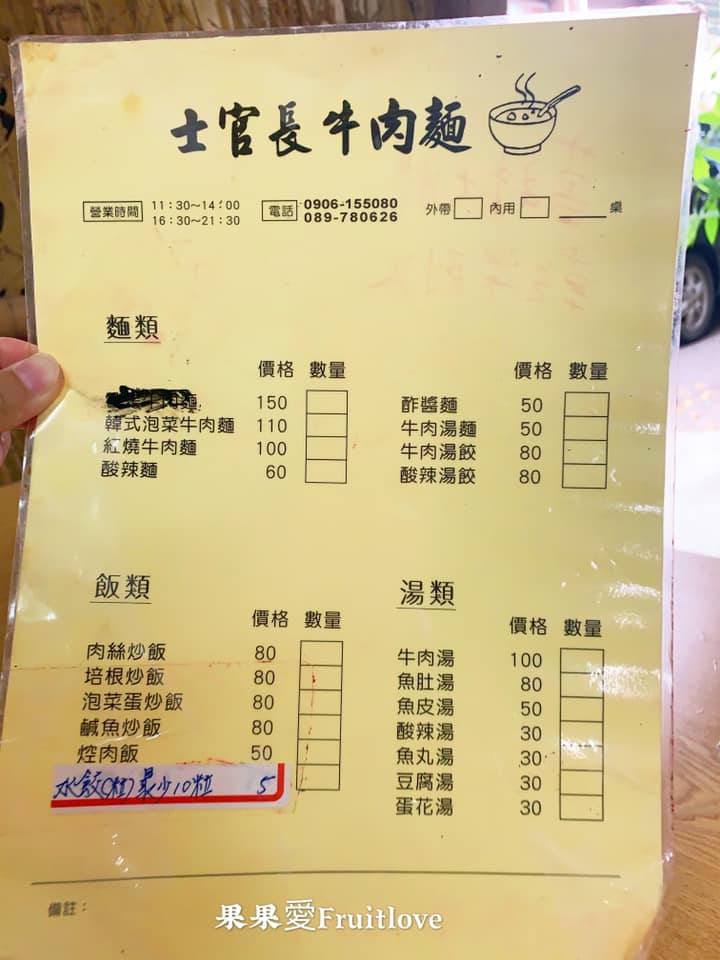 士官長牛肉麵
營業時間 11:30～14:00
16:30～21:30
電話 0906-155080
089-780626
外帶 內用 桌
麵類
價格 數量
牛肉麵 150
韓式泡菜牛肉麵 110
紅燒牛肉麵 100
酸辣麵 60
價格 數量
酢醬麵 50
牛肉湯麵 50
牛肉湯餃 80
酸辣湯餃 80
飯類
價格 數量
肉絲炒飯 80
培根炒飯 80
泡菜蛋炒飯 80
鹹魚炒飯 80
焢肉飯 50
水餃(1粒)最少10粒 5
湯類
價格 數量
牛肉湯 100
魚肚湯 80
魚皮湯 50
酸辣湯 30
魚丸湯 30
豆腐湯 30
蛋花湯 30
備註：
果果愛Fruitlove